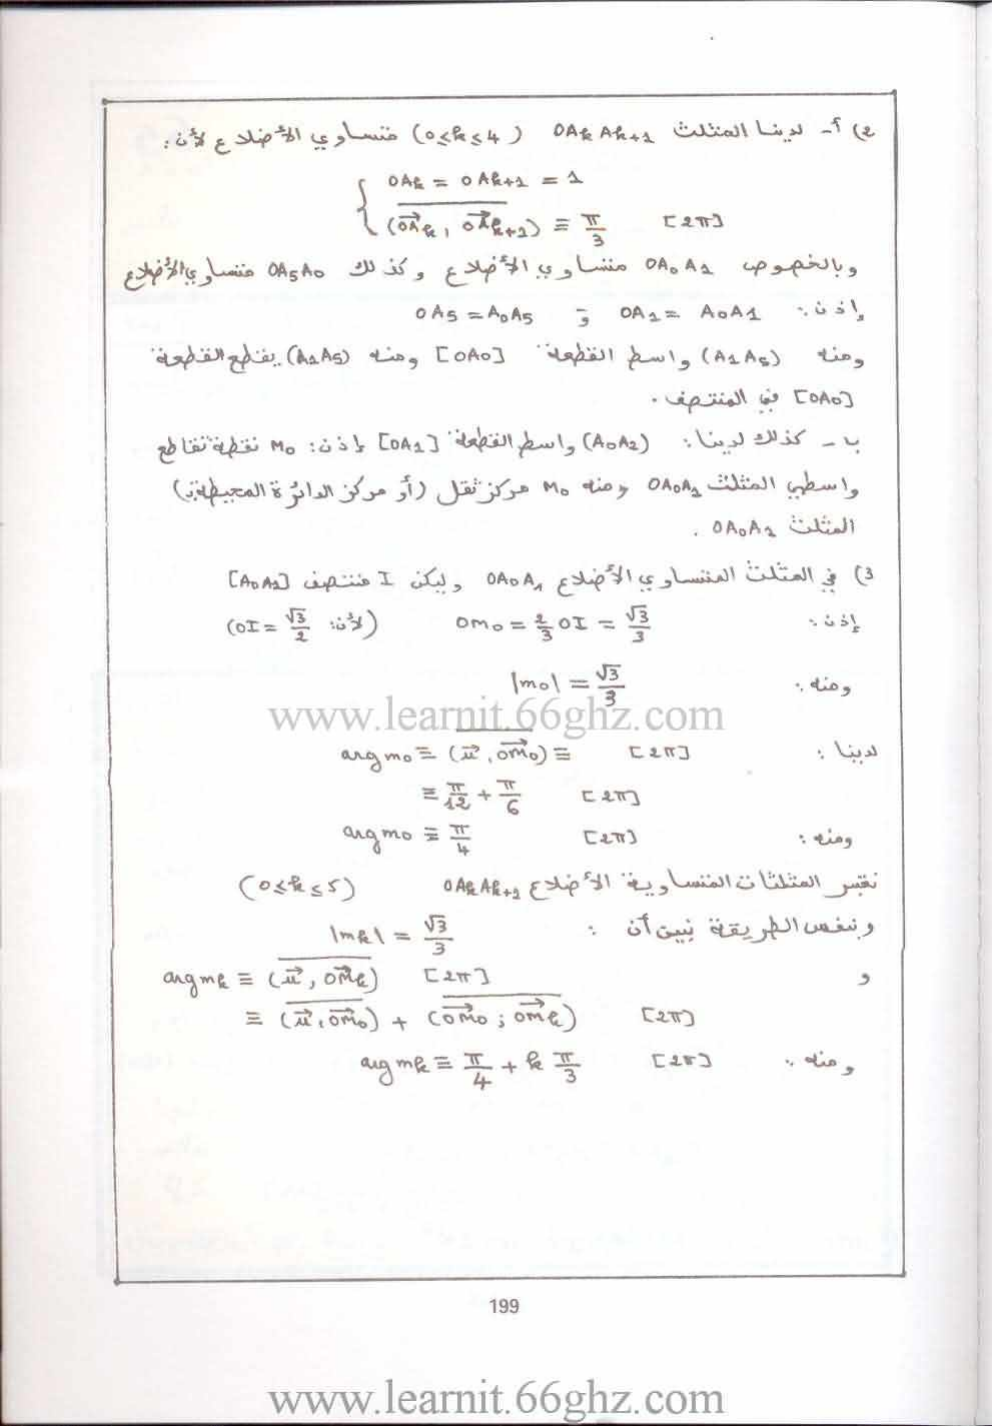 2) أ- لدينا المثلث OAkAk+1 (0≤k≤4) متساوي الأضلاع لأن:
OAk = OAk+1 = 1
(OAk , OAk+1) ≡ π/3 [2π]
وبالخصوص OA0A1 متساوي الأضلاع وكذلك OA5A0 متساوي الأضلاع
إذن: OA1 = A0A1 و OA5 = A0A5
ومنه (A1A5) واسط القطعة [OA0] ومنه (A1A5) يقطع القطعة
[OA0] في المنتصف.
ب - كذلك لدينا: (A0A2) واسط القطعة [OA1] إذن: M0 نقطة تقاطع
واسطي المثلث OA0A1 ومنه M0 مركز ثقل (أو مركز الدائرة المحيطة بـ)
المثلث OA0A1 .
3) في المثلث المتساوي الأضلاع OA0A1 وليكن I منتصف [A0A1]
إذن: OM0 = 2/3 OI = √3/3 (لأن: OI = √3/2)
ومنه: |m0| = √3/3
www.learnit.66ghz.com
لدينا: arg m0 ≡ (u , OM0) ≡ [2π]
≡ π/12 + π/6 [2π]
ومنه: arg m0 ≡ π/4 [2π]
نعتبر المثلثات المتساوية الأضلاع OAkAk+1 (0≤k≤5)
وبنفس الطريقة نبين أن : |mk| = √3/3
و arg mk ≡ (u , OMk) [2π]
≡ (u , OM0) + (OM0 ; OMk) [2π]
ومنه: arg mk ≡ π/4 + k π/3 [2π]
199
www.learnit.66ghz.com